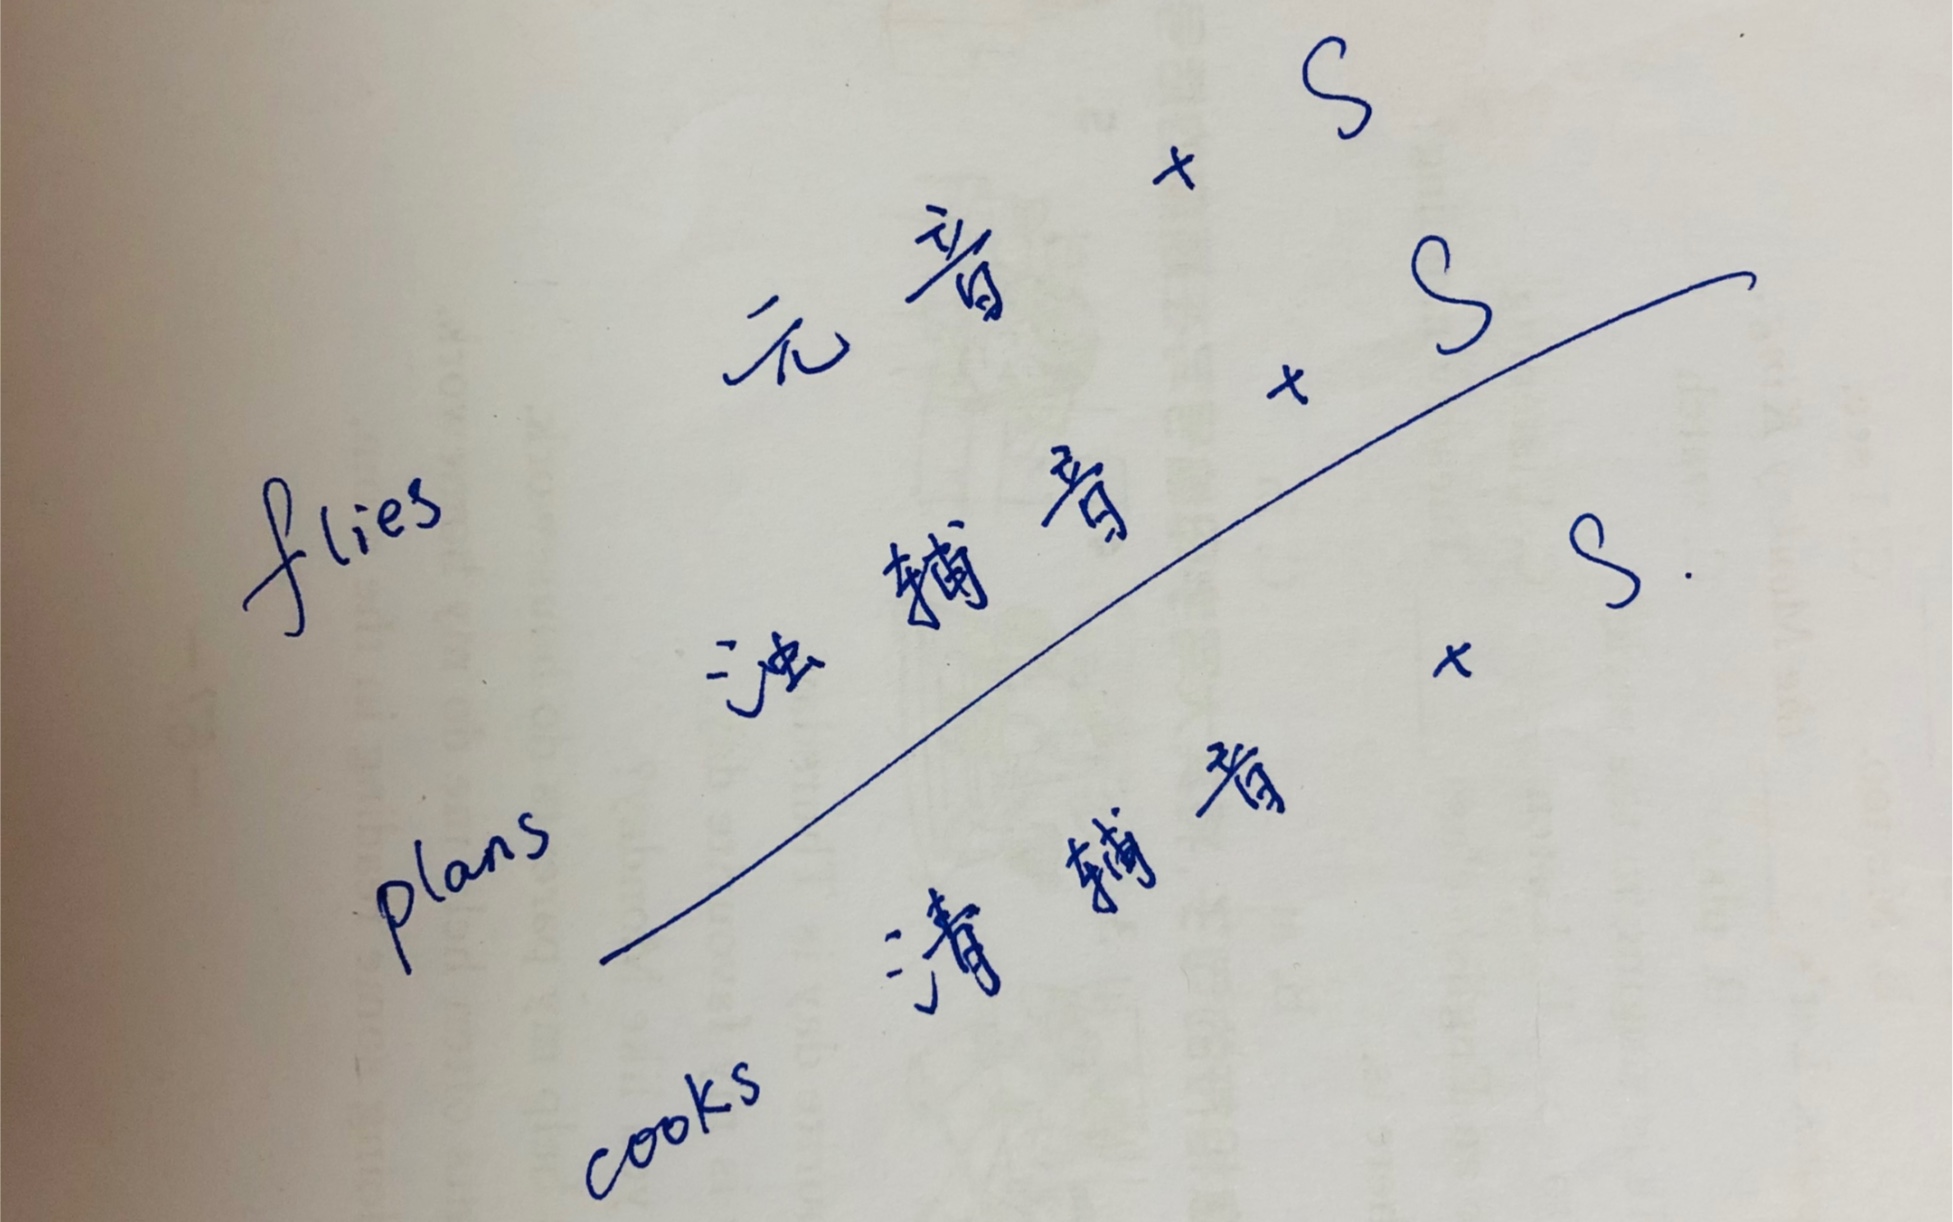 flies 元音 + S
plans 浊辅音 + S
cooks 清辅音 + S.